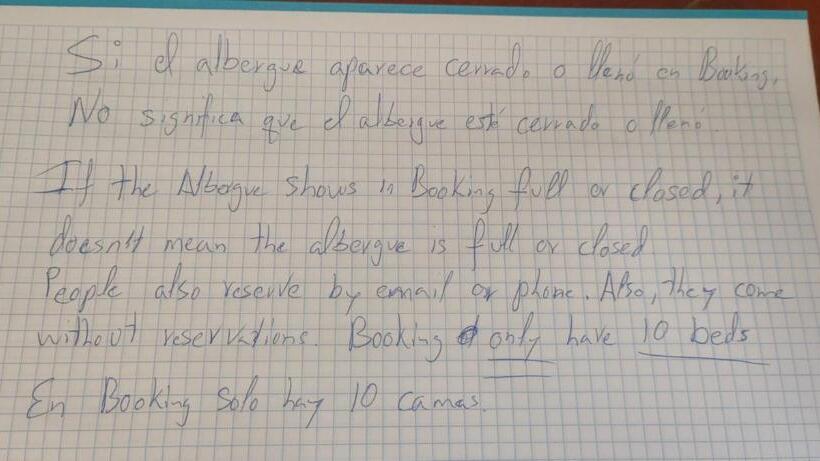 Si el albergue aparece cerrado o llenó en Booking,
No significa que el albergue esté cerrado o llenó.
If the Albergue shows in Booking full or closed, it
doesn't mean the albergue is full or closed
People also reserve by email or phone. Also, they come
without reservations. Booking only have 10 beds
En Booking solo hay 10 camas.